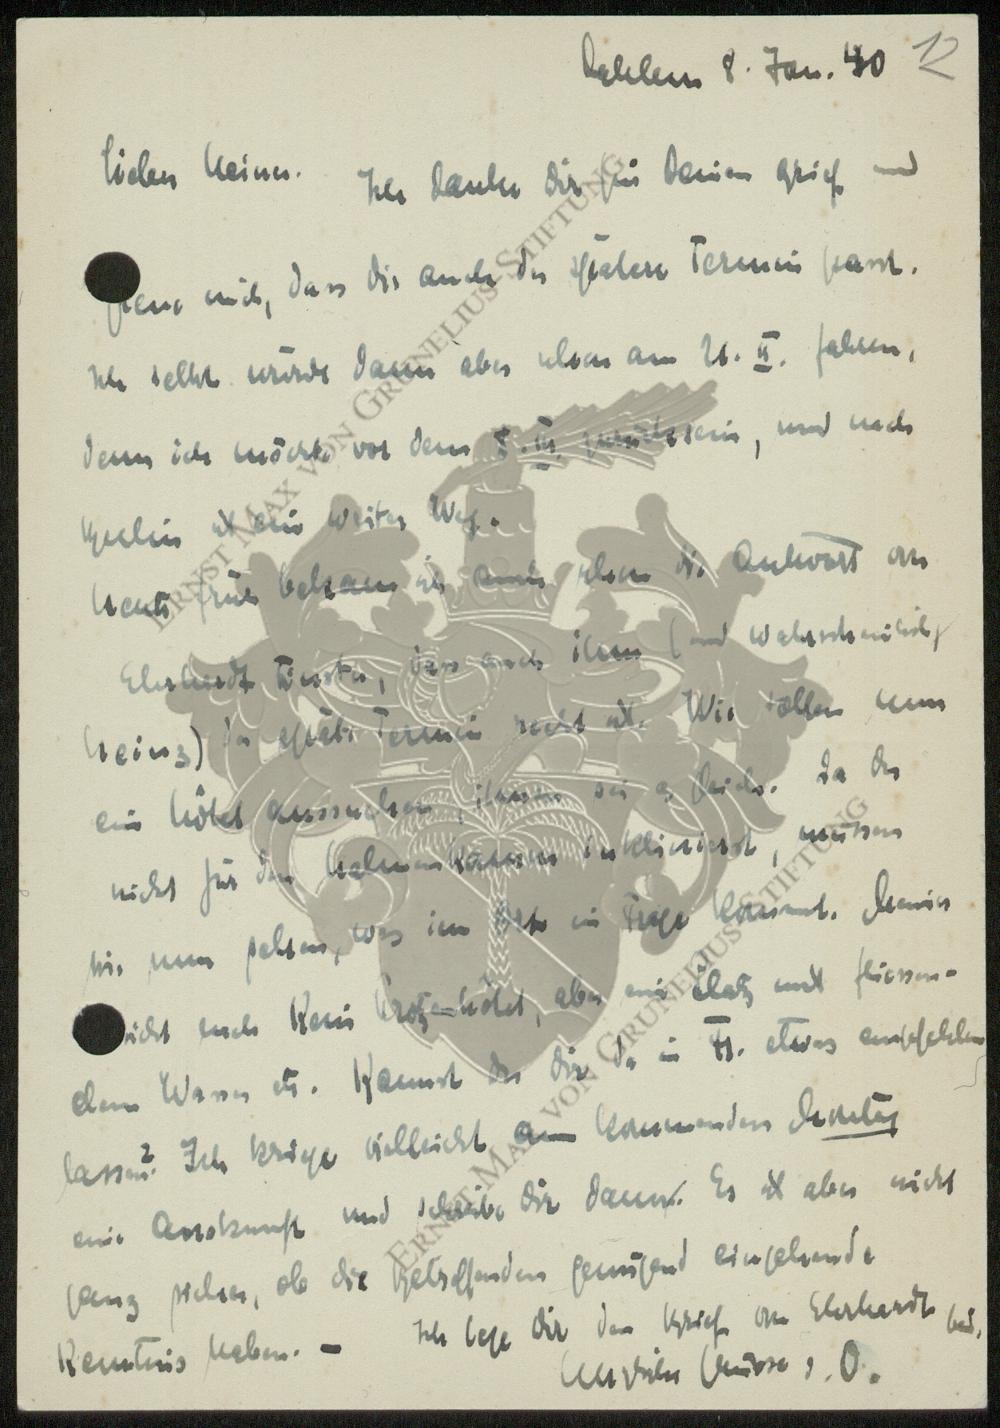 Dahlem 8. Jan. 40 12
Lieber Heiner. Ich danke Dir für Deinen Brief und
freue mich, dass Dir auch der spätere Termin passt.
Ich selbst würde dann aber schon am 21. II. fahren,
denn ich möchte vor dem 8. III. zurücksein, und nach
Berlin ist ein weiter Weg.
Heute früh bekam ich auch schon die Antwort von
Ehrhardt, dass auch ihm (und wahrscheinlich
Heinz) der späte Termin recht ist. Wir sollen nun
ein Hôtel aussuchen, ihnen sei es gleich. Da Du
nicht für den inklinierst, müssen
wir nun sehen, was im Orte in Frage kommt.
nicht nach kein Protzenhôtel, aber ein Platz mit fliessen-
dem Wasser etc. Kannst du Dir da in Ff. etwas empfehlen
lassen? Ich kriege vielleicht am kommenden Montag
eine Auskunft und schreibe Dir dann. Es ist aber nicht
ganz sicher, ob die Betreffenden genügend eingehende
Kenntnis haben. – Ich lege Dir den Brief von Ehrhardt bei.
Herzliche Grüsse s. O.
ERNST MAX VON GRUNELIUS-STIFTUNG
ERNST MAX VON GRUNELIUS-STIFTUNG